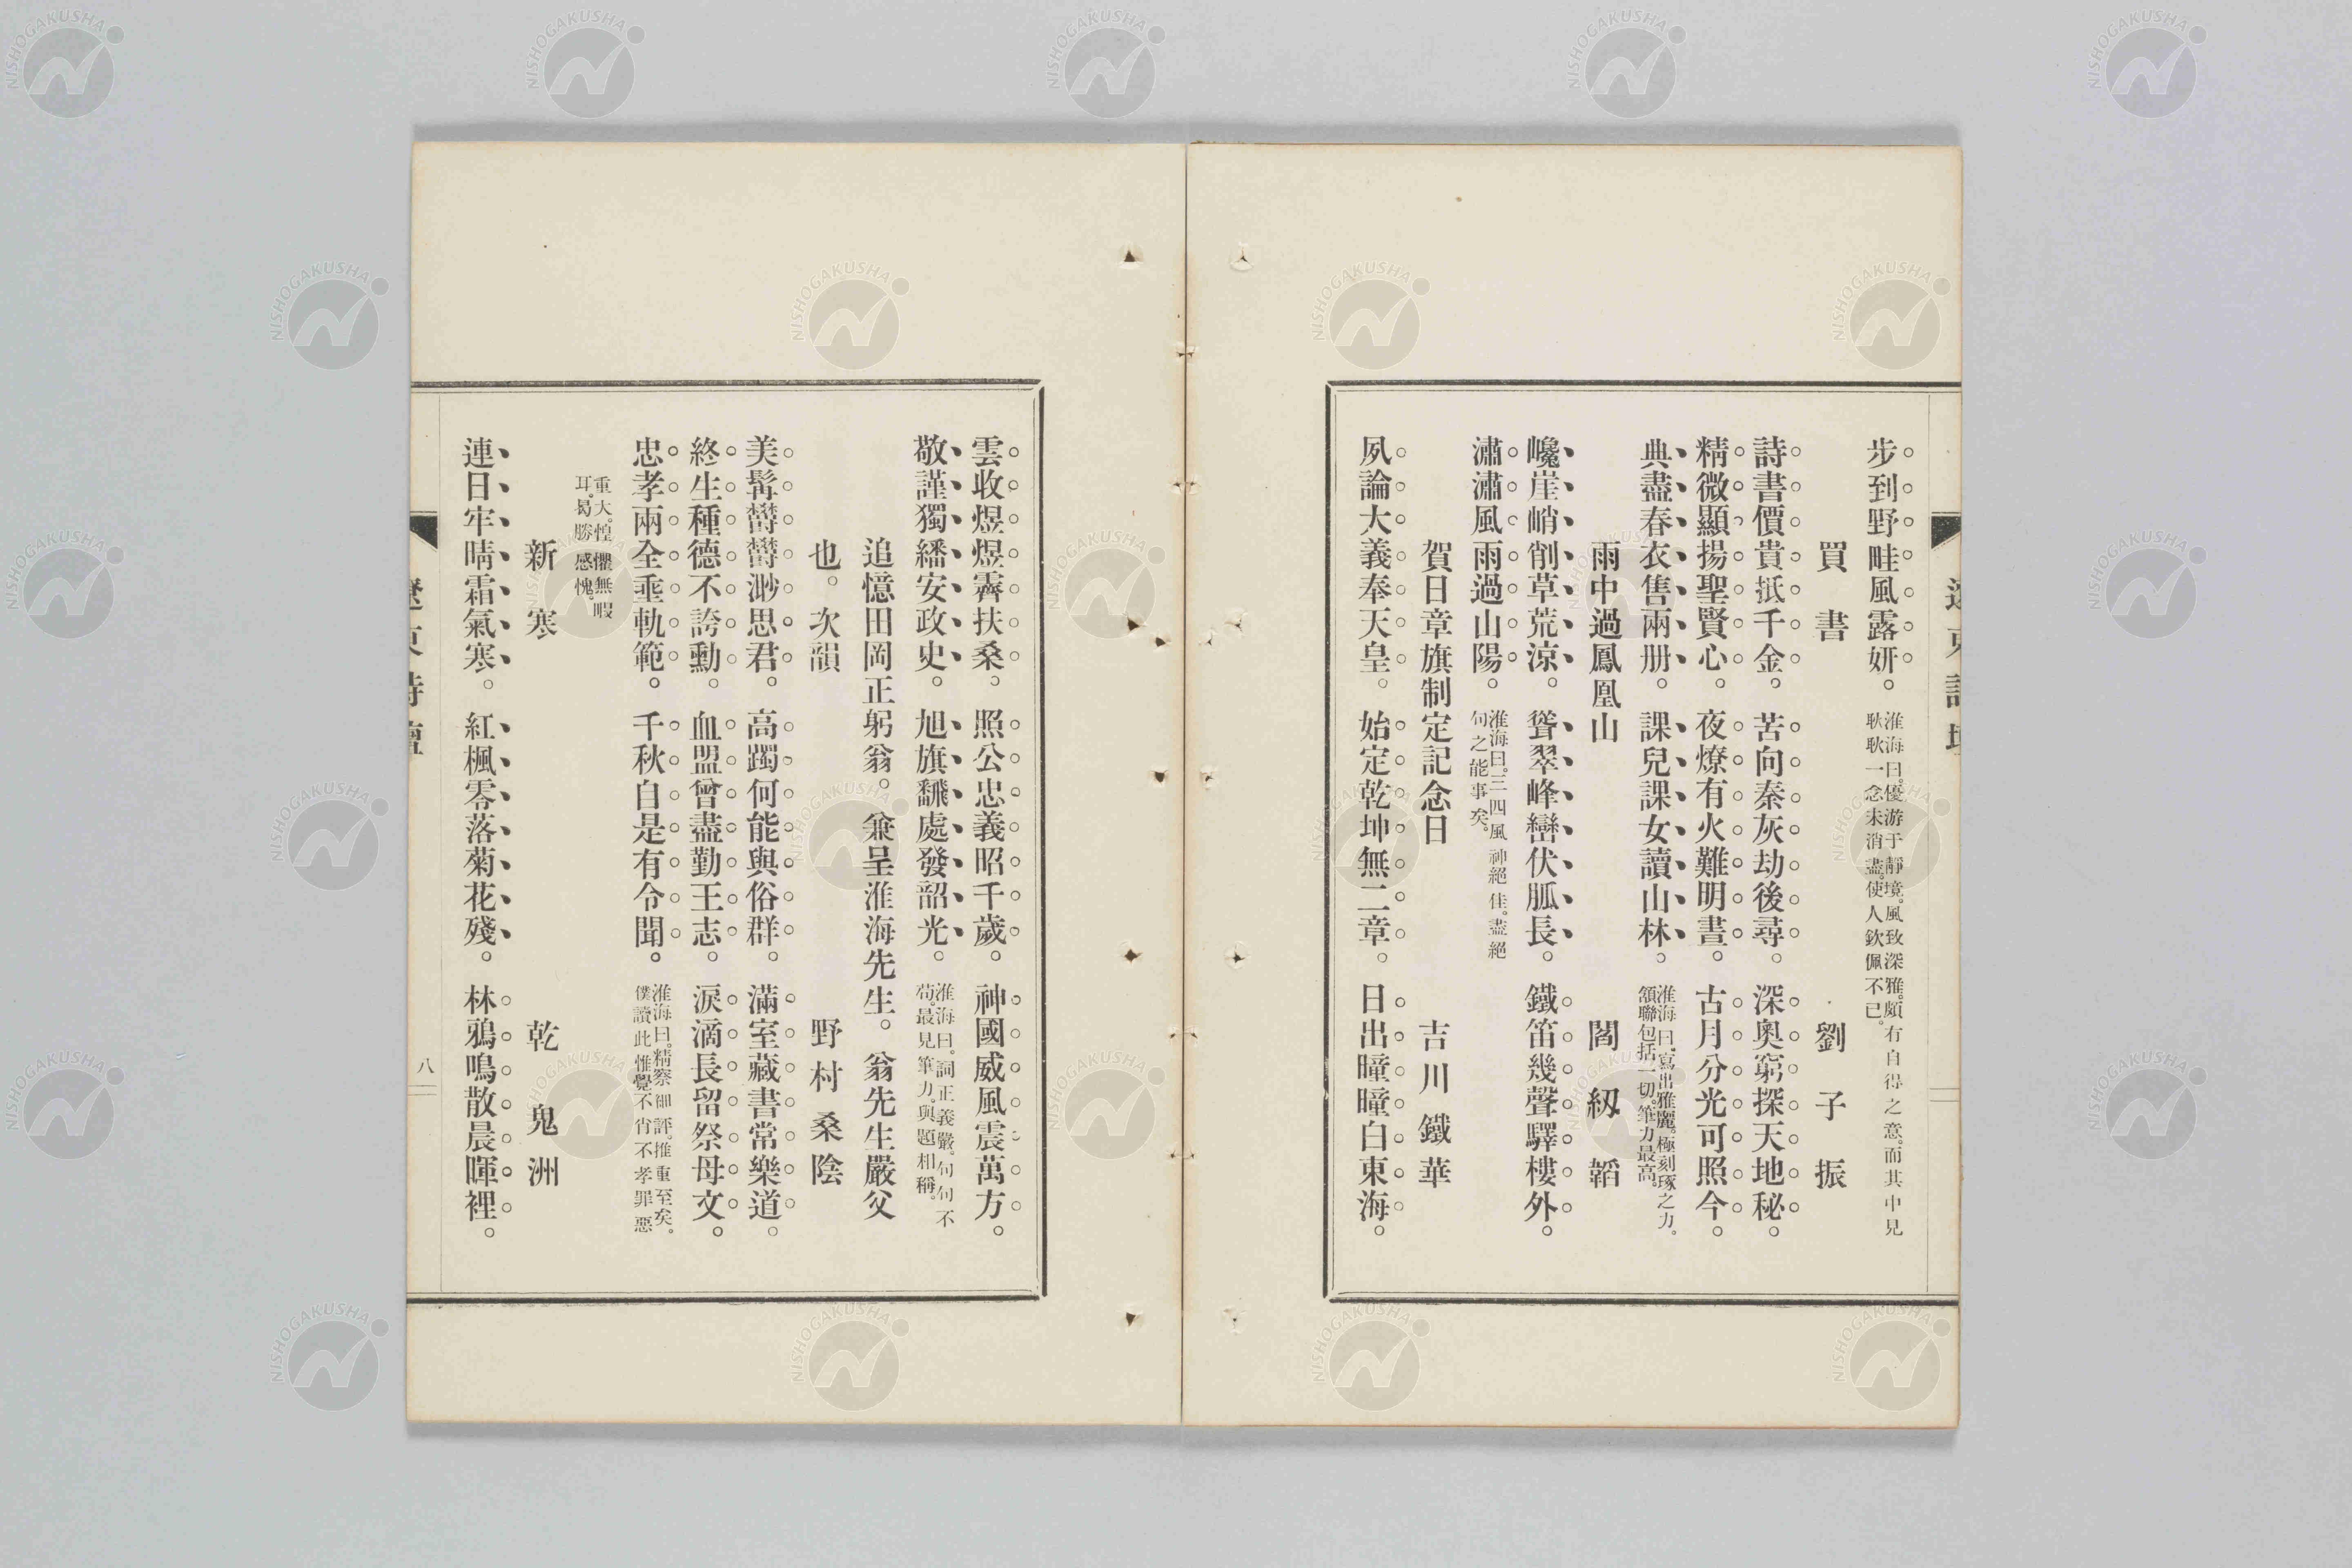 步到野畦風露妍。淮海曰。優游于靜境。風致深雅。頗有自得之意。而其中見
耿耿一念未消盡。使人欽佩不已。
買書 劉子振
詩書價貴抵千金。苦向秦灰劫後尋。深奧窮探天地秘。
精微顯揚聖賢心。夜燎有火難明晝。古月分光可照今。
典盡春衣售兩册。課兒課女讀山林。淮海曰。寫出雅麗。極刻琢之力。
頷聯包括一切。筆力最高。
雨中過鳳凰山 閻紉韜
巉崖峭削草荒涼。聳翠峰巒伏脈長。鐵笛幾聲驛樓外。
瀟瀟風雨過山陽。淮海曰。三四風神絕佳。盡絕
句之能事矣。
賀日章旗制定記念日 吉川鐵華
夙論大義奉天皇。始定乾坤無二章。日出曈曈白東海。
雲收煜煜霽扶桑。照公忠義昭千歲。神國威風震萬方。
敬謹獨繙安政史。旭旗飜處發韶光。淮海曰。詞正義嚴。句句不
苟。最見筆力。與題相稱。
追憶田岡正躬翁。兼呈淮海先生。翁先生嚴父
也。次韻 野村桑陰
美髯欝欝渺思君。高躅何能與俗群。滿室藏書常樂道。
終生種德不誇勳。血盟曾盡勤王志。淚滴長留祭母文。
忠孝兩全垂軌範。千秋自是有令聞。淮海曰。精察御評。推重至矣。
僕讀此惟覺不肖不孝罪惡
重大。惶懼無暇
耳。曷勝感愧。
新寒 乾鬼洲
連日牢晴霜氣寒。紅楓零落菊花殘。林鴉鳴散晨暉裡。
八